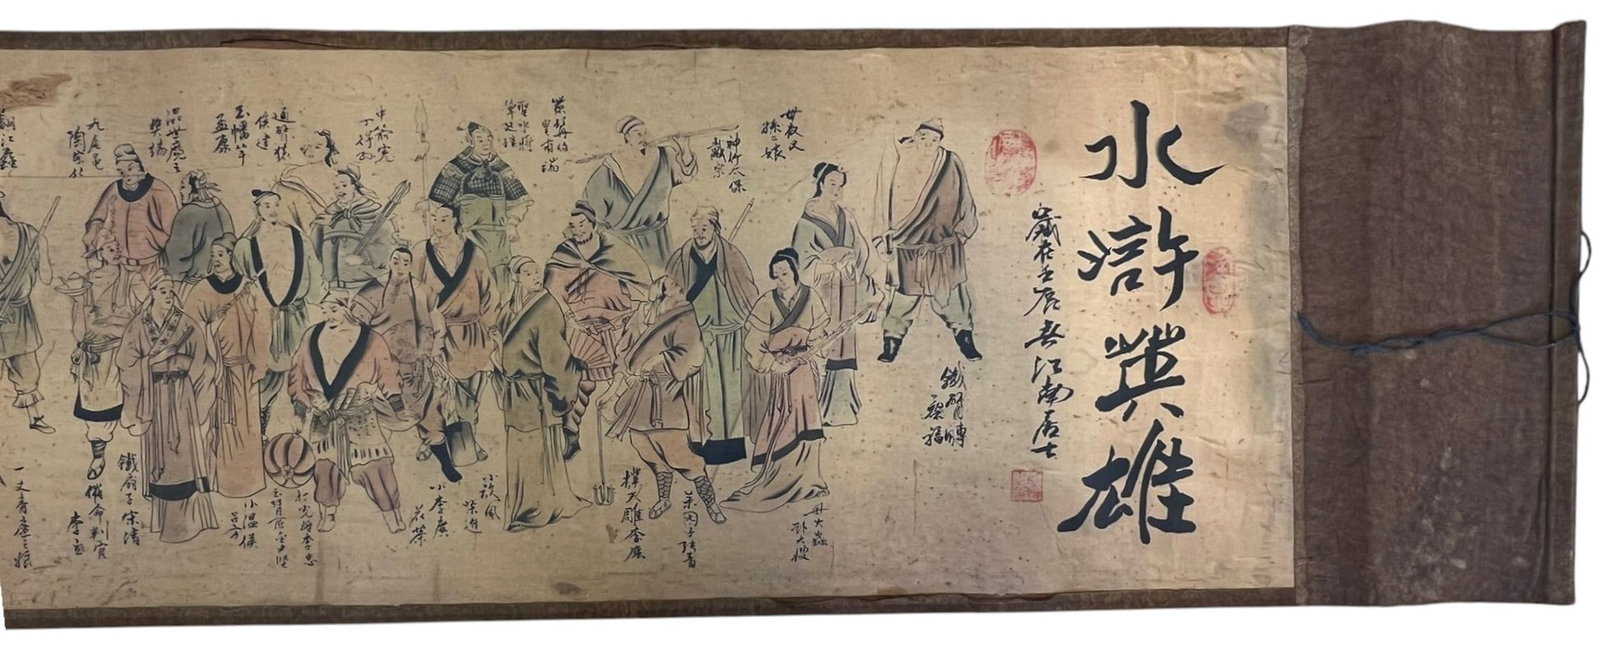 水滸英雄
歲在壬辰春江南居士
鐵臂膊
蔡福
母夜叉
孫二娘
神行太保
戴宗
母大蟲
顧大嫂
菜園子張青
撲天雕李應
紫髯伯
皇甫端
聖水將
單廷珪
小旋風
柴進
小李廣
花榮
中箭虎
丁得孫
通臂猿
侯建
玉幡竿
孟康
打虎將李忠
小溫侯
呂方
混世魔王
樊瑞
九尾龜
陶宗旺
鐵扇子宋清
催命判官
李立
一丈青扈三娘